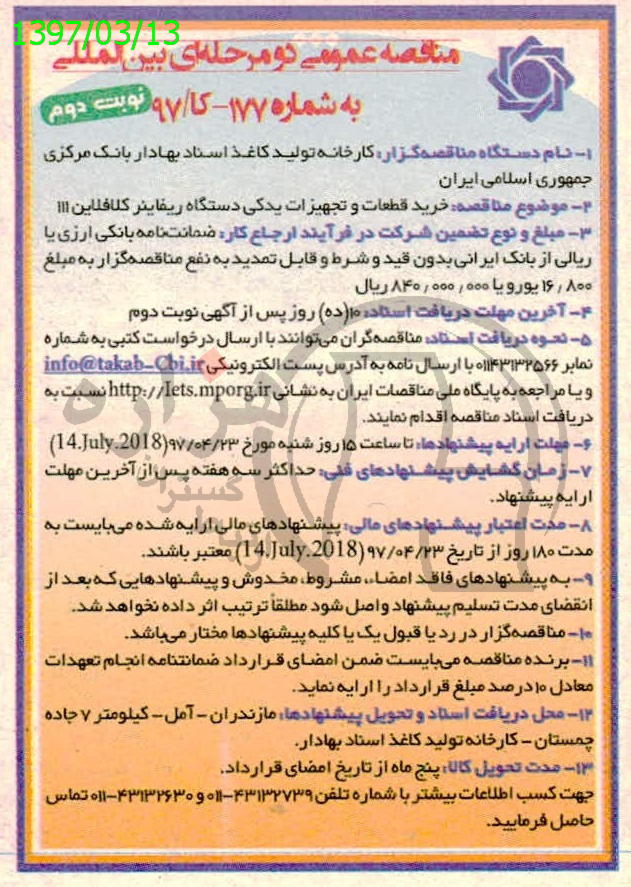 1397/03/13
مناقصه عمومی دو مرحله‌ای بین‌المللی
به شماره ۱۷۷-کا/۹۷
نوبت دوم
۱- نام دستگاه مناقصه‌گزار: کارخانه تولید کاغذ اسناد بهادار بانک مرکزی
جمهوری اسلامی ایران
۲- موضوع مناقصه: خرید قطعات و تجهیزات یدکی دستگاه ریفاینر کلافلاین III
۳- مبلغ و نوع تضمین شرکت در فرآیند ارجاع کار: ضمانت‌نامه بانکی ارزی یا
ریالی از بانک ایرانی بدون قید و شرط و قابل تمدید به نفع مناقصه‌گزار به مبلغ
۱۶٫۸۰۰ یورو یا ۸۴۰٫۰۰۰٫۰۰۰ ریال
۴- آخرین مهلت دریافت اسناد: ۱۰(ده) روز پس از آگهی نوبت دوم
۵- نحوه دریافت اسناد: مناقصه‌گران می‌توانند با ارسال درخواست کتبی به شماره
نمابر ۰۱۱۴۳۱۳۲۵۶۶ با ارسال نامه به آدرس پست الکترونیکی info@takab-Cbi.ir
و یا مراجعه به پایگاه ملی مناقصات ایران به نشانی http://Iets.mporg.ir نسبت به
دریافت اسناد مناقصه اقدام نمایند.
۶- مهلت ارایه پیشنهادها: تا ساعت ۱۵ روز شنبه مورخ ۹۷/۰۴/۲۳ (14.July.2018)
۷- زمان گشایش پیشنهادهای فنی: حداکثر سه هفته پس از آخرین مهلت
ارایه پیشنهاد.
۸- مدت اعتبار پیشنهادهای مالی: پیشنهادهای مالی ارایه شده می‌بایست به
مدت ۱۸۰ روز از تاریخ ۹۷/۰۴/۲۳ (14.July.2018) معتبر باشند.
۹- به پیشنهادهای فاقد امضاء، مشروط، مخدوش و پیشنهادهایی که بعد از
انقضای مدت تسلیم پیشنهاد واصل شود مطلقاً ترتیب اثر داده نخواهد شد.
۱۰- مناقصه‌گزار در رد یا قبول یک یا کلیه پیشنهادها مختار می‌باشد.
۱۱- برنده مناقصه می‌بایست ضمن امضای قرارداد ضمانتنامه انجام تعهدات
معادل ۱۰ درصد مبلغ قرارداد را ارایه نماید.
۱۲- محل دریافت اسناد و تحویل پیشنهادها: مازندران - آمل - کیلومتر ۷ جاده
چمستان - کارخانه تولید کاغذ اسناد بهادار.
۱۳- مدت تحویل کالا: پنج ماه از تاریخ امضای قرارداد.
جهت کسب اطلاعات بیشتر با شماره تلفن ۴۳۱۳۲۷۳۹-۰۱۱ و ۴۳۱۳۲۶۳۰-۰۱۱ تماس
حاصل فرمایید.
هزاره
گستران